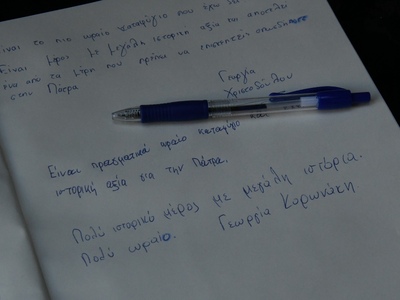 είναι το πιο ωραίο καταφύγιο που έχω
Είναι μέρος με μεγάλη ιστορική αξία και αποτελεί
ένα από τα μέρη που πρέπει να επισκεφτείς οπωσδήποτε
στην Πάτρα
Γεωργία
Χριστοδούλου
Είναι πραγματικά ωραίο καταφύγιο
ιστορική αξία για την Πάτρα.
Πολύ ιστορικό μέρος με μεγάλη ιστορία.
Πολύ ωραίο. Γεωργία Κορωνάκη